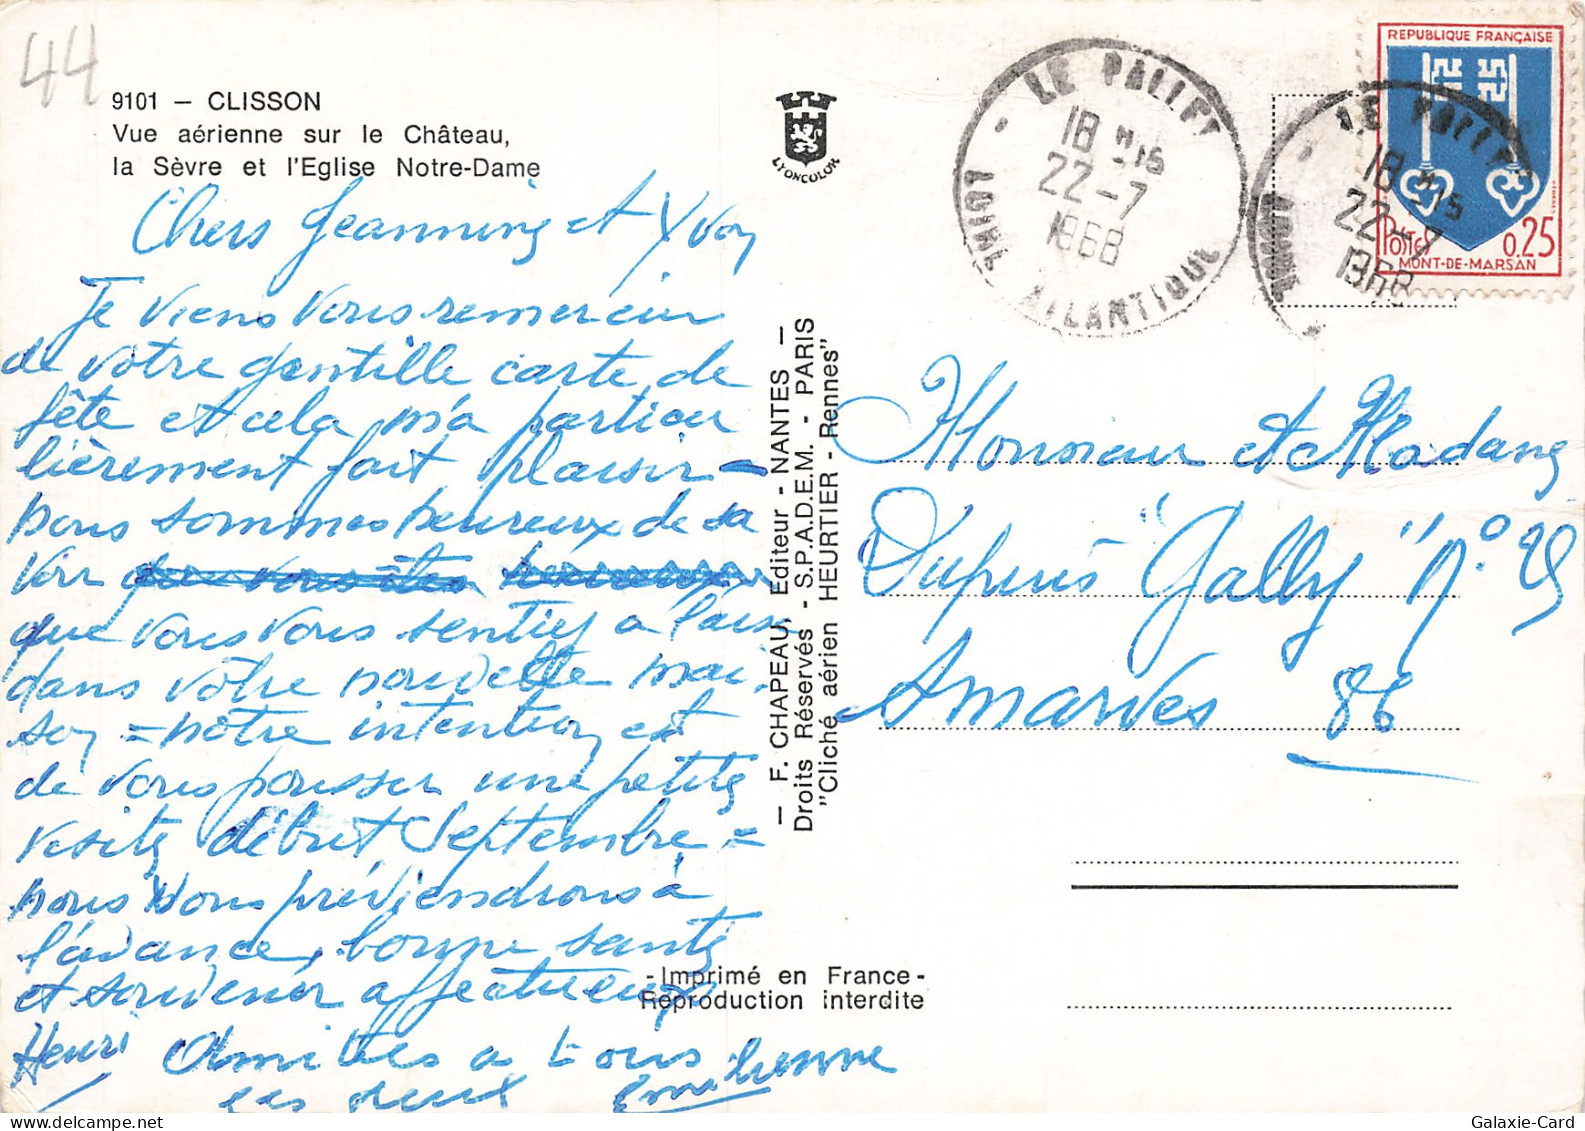 44
9101 — CLISSON
Vue aérienne sur le Château,
la Sèvre et l'Eglise Notre-Dame
LYONCOLOR
LE PALLET
18 H 15
22-7
1968
LOIRE ATLANTIQUE
LE PALLET
18 H 15
22-7
1968
REPUBLIQUE FRANÇAISE
POSTES
0.25
MONT-DE-MARSAN
Chers Jeannine et Yvon
Je viens vous remercier
de votre gentille carte de
fête et cela m'a particu
lièrement fait plaisir -
nous sommes heureux de sa
voir
que vous vous sentiez a l'aise
dans vôtre nouvelle mai-
son = nôtre intention est
de vous pousser une petite
visite début Septembre =
nous vous préviendrons à
l'avance, bonne santé
et souvenir affectueux
Henri Amitiés a tous
les deux Emilienne
— F. CHAPEAU, Editeur - NANTES —
Droits Réservés - S.P.A.D.E.M. - PARIS
"Cliché aérien HEURTIER - Rennes"
Monsieur et Madame
Dupuis "Gally" N°
86
-Imprimé en France-
Reproduction interdite
Galaxie-Card